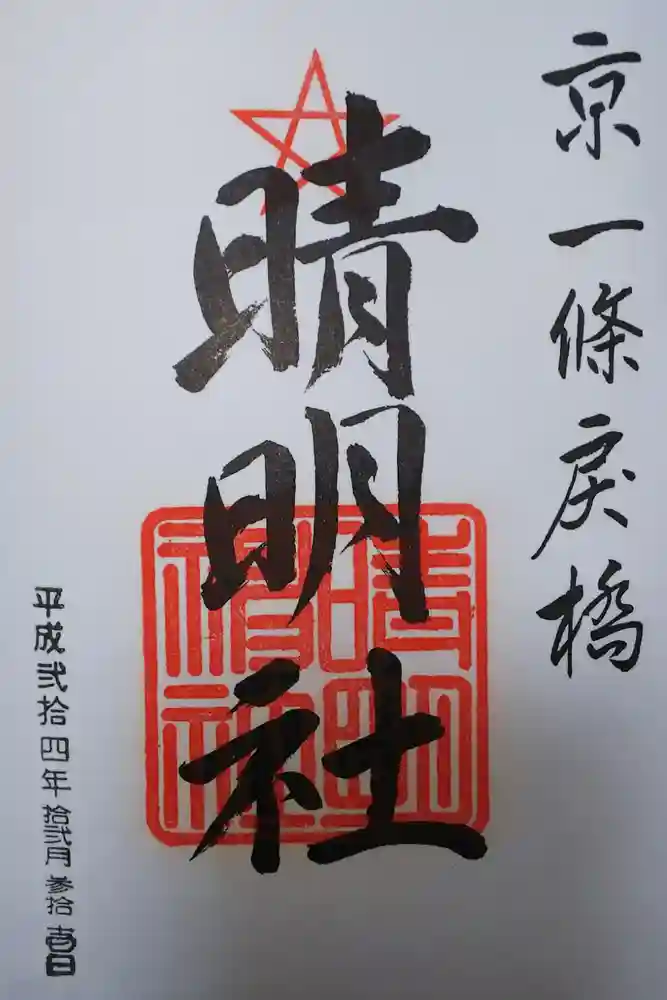 京一條戻橋
晴明社
平成弐拾四年拾弐月参拾壹日